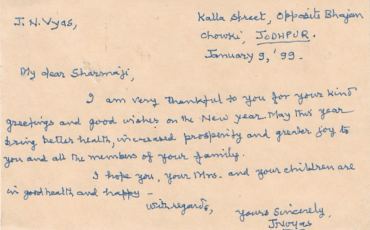 J. N. Vyas,
Kalla Street, Opposite Bhajan
Chowki, JODHPUR.
January 9, '99.
My dear Sharmaji,
I am very thankful to you for your kind
greetings and good wishes on the New year. May this year
bring better health, increased prosperity and greater joy to
you and all the members of your family.
I hope you, your Mrs. and your children are
in good health and happy –
With regards,
yours Sincerely,
JNVyas